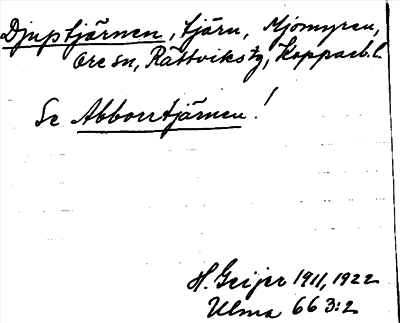 Djuptjärnen, tjärn, Mjömyren,
Ore sn, Rättviks tg, Kopparb. l.
Se Abborrtjärnen!
H. Geijer 1911, 1922
Ulma 663:2